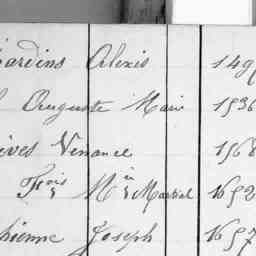 jardins Alexis 149
Auguste Marie 1536
ives Venance 1568
Trois Min Martial 1652
hienne Joseph 1657